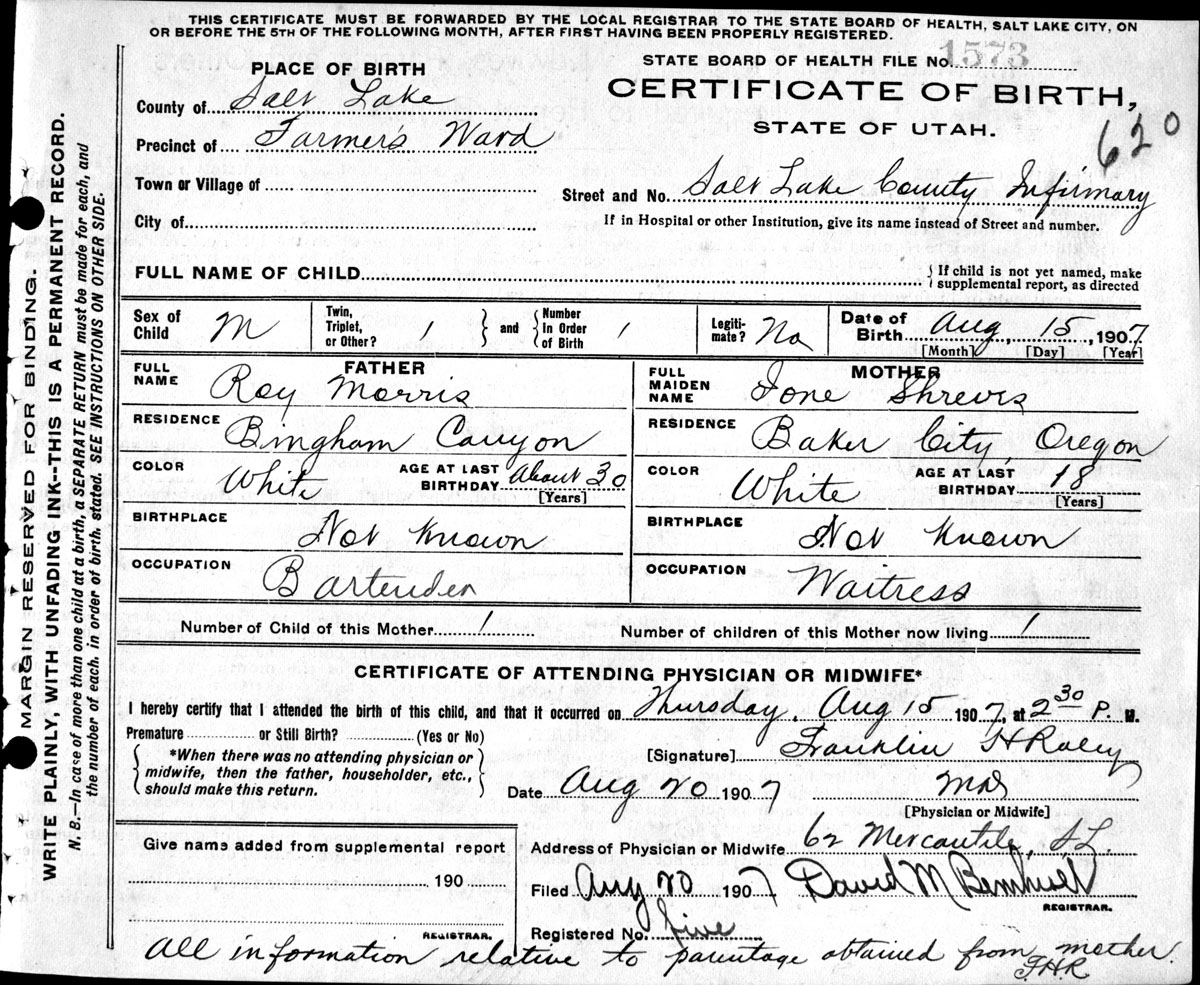 THIS CERTIFICATE MUST BE FORWARDED BY THE LOCAL REGISTRAR TO THE STATE BOARD OF HEALTH, SALT LAKE CITY, ON
OR BEFORE THE 5TH OF THE FOLLOWING MONTH, AFTER FIRST HAVING BEEN PROPERLY REGISTERED.
STATE BOARD OF HEALTH FILE No. 1573
CERTIFICATE OF BIRTH,
STATE OF UTAH.
620
PLACE OF BIRTH
County of Salt Lake
Precinct of Farmer's Ward
Town or Village of
City of
Street and No. Salt Lake County Infirmary
If in Hospital or other Institution, give its name instead of Street and number.
FULL NAME OF CHILD
If child is not yet named, make
supplemental report, as directed
Sex of Child M
Twin, Triplet, or Other? 1
and
Number In Order of Birth 1
Legiti-mate? No
Date of Birth Aug 15, 1907
[Month] [Day] [Year]
FATHER
FULL NAME Roy Morris
RESIDENCE Bingham Canyon
COLOR White AGE AT LAST BIRTHDAY About 30
[Years]
BIRTHPLACE Not Known
OCCUPATION Bartender
MOTHER
FULL MAIDEN NAME Ione Shreves
RESIDENCE Baker City, Oregon
COLOR White AGE AT LAST BIRTHDAY 18
[Years]
BIRTHPLACE Not Known
OCCUPATION Waitress
Number of Child of this Mother 1 Number of children of this Mother now living 1
CERTIFICATE OF ATTENDING PHYSICIAN OR MIDWIFE*
I hereby certify that I attended the birth of this child, and that it occurred on Thursday, Aug 15 1907, at 2 30 P. M.
Premature or Still Birth? (Yes or No)
*When there was no attending physician or
midwife, then the father, householder, etc.,
should make this return.
[Signature] Franklin H Raley
Date Aug 20 1907 MD
[Physician or Midwife]
Address of Physician or Midwife 62 Mercantile, S.L.
Give name added from supplemental report
190
REGISTRAR.
Filed Aug 20 1907 David M
REGISTRAR.
Registered No. five
All information relative to parentage obtained from mother.
F.H.R
MARGIN RESERVED FOR BINDING.
WRITE PLAINLY, WITH UNFADING INK—THIS IS A PERMANENT RECORD.
N. B.—In case of more than one child at a birth, a SEPARATE RETURN must be made for each, and
the number of each, in order of birth, stated. SEE INSTRUCTIONS ON OTHER SIDE.